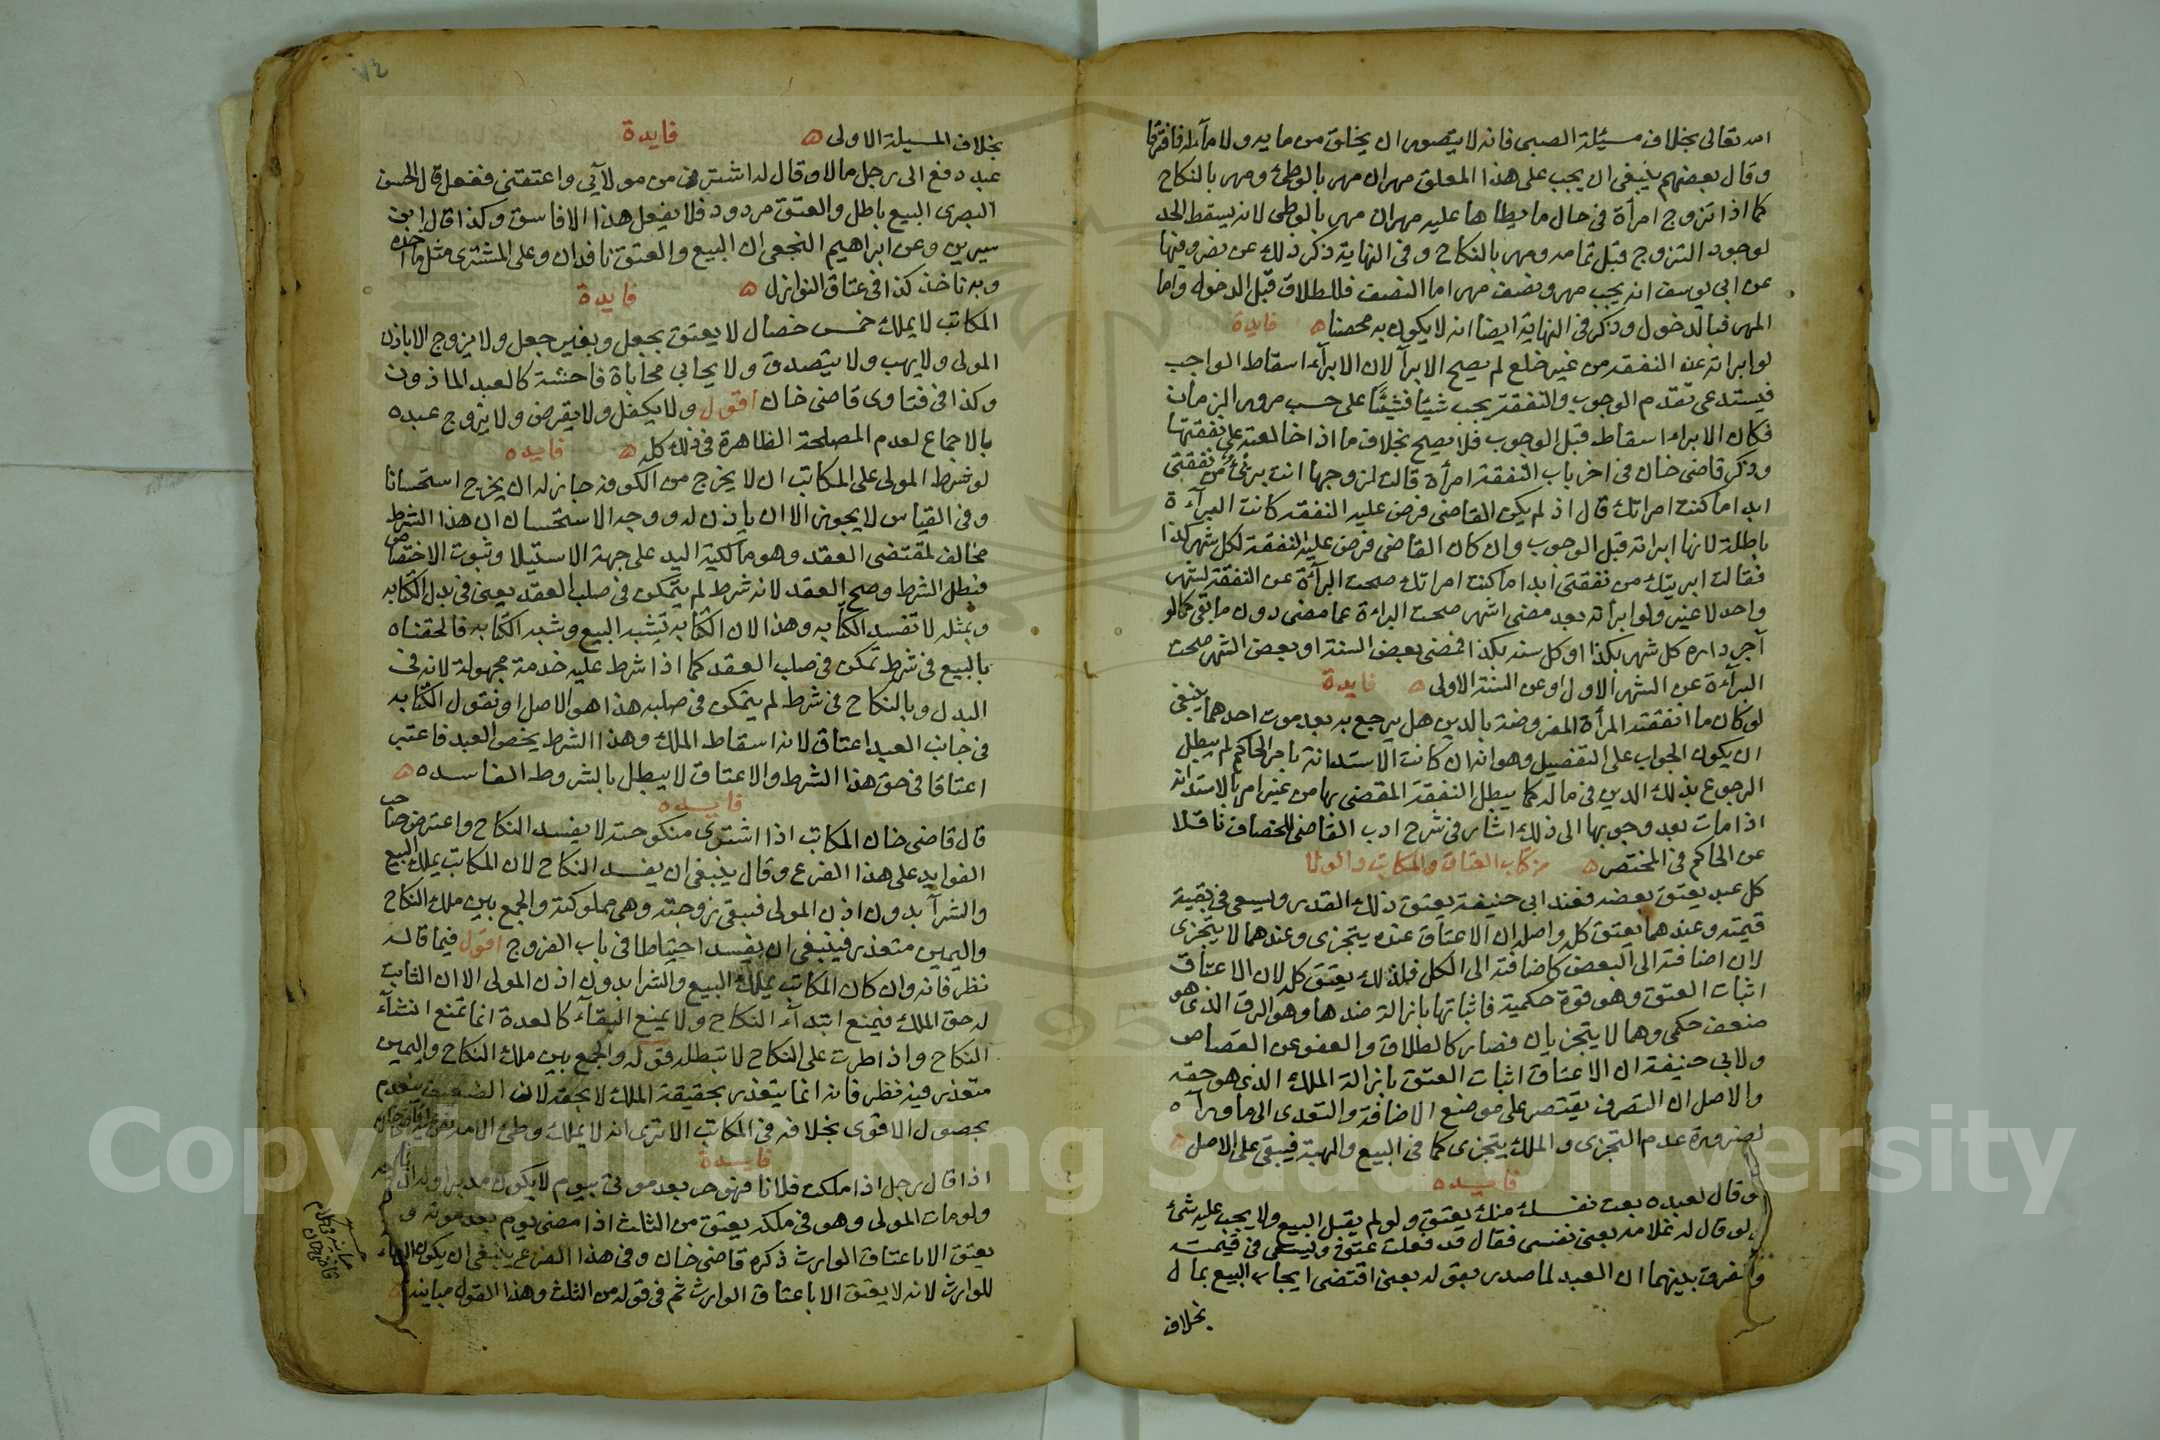 الله تعالى بخلاف مسئلة الصبى فانه لا يتصور ان يخلق من مايه ولا مآ له فافترقا
وقال بعضهم ينبغى ان يجب على هذا المعلق مهران مهر بالوطئ ومهر بالنكاح
كما اذا تزوج امرأة فى حال ما يطاها عليه مهران مهر بالوطى لانه يسقط الحد
لوجود التزوج قبل تمامه ومهر بالنكاح وفى النهاية ذكر ذلك عن
عن ابى يوسف انه يجب مهر ونصف مهر اما النصف فللطلاق قبل الدخول واما
المهر فبالدخول وذكر فى النهاية ايضا انه لا يكون به محصنا ه فايدة
لو ابراته عن النفقه من غير خلع لم يصح الابرآ لان الابرآء اسقاط الواجب
فيستدعى تقدم الوجوب والنفقة يجب شيئا فشيئا على حسب مرور الزمان
فكان الابراء اسقاط قبل الوجوب فلا يصح بخلاف ما اذا خالعته على نفقتها
وذكر قاضى خان فى اخر باب النفقة امرأة قالت لزوجها انت برئ من نفقتى
ابدا ما كنت امراتك قال اذ لم يكن القاضى فرض عليه النفقه كانت البرآءة
باطلة لانها ابراته قبل الوجوب وان كان القاضى فرض عليه النفقة لكل شهر كذا
فقالت ابريتك من نفقتى ابدا ما كنت امراتك صحت البرآئة عن النفقة لشهر
واحد لا غير ولو ابراته بعد مضى اشهر صحت البراءة عما مضى دون ما بقى كما لو
آجر داره كل شهر بكذا او كل سنه بكذا فمضى بعض السنة او بعض الشهر صحت
البرآءة عن الشهر الاول او عن السنة الاولى ه فايدة
لو كان ما انفقته المرأة المفروضة بالدين هل يرجع به بعد موت احدهما ينبغى
ان يكون الجواب على التفصيل وهو انه ان كانت الاستدانة بامر الحاكم لم يبطل
الرجوع بذلك الدين فى ماله كما يبطل النفقة المقضى بها من غير امر بالاستدانه
اذا مات بعد وجوبها الى ذلك اشار فى شرح ادب القاضى للخصاف ناقلا
عن الحاكم فى المختصر ه من كتاب العتاق والمكاتب والولا
كل عبد يعتق بعضه فعند ابى حنيفة يعتق ذلك القدر ويسعى فى بقية
قيمته وعندهما يعتق كله واصله ان الاعتاق عنده يتجزى وعندهما لا يتجزى
لان اضافته الى البعض كاضافته الى الكل فلذلك يعتق كله لان الاعتاق
اثبات العتق وهو قوة حكمية فاثباتها بازالة ضدها وهو الرق الذى هو
ضعف حكمى وهما لا يتجزيان فصار كالطلاق والعفو عن القصاص
ولابى حنيفة ان الاعتاق اثبات العتق بازالة الملك الذى هو حقه
والاصل ان التصرف يقتصر على موضع الاضافة والتعدى الى ما ورآه
لضرورة عدم التجزى والملك يتجزى كما فى البيع والهبة فيبقى على الاصل ه
فايده
لو قال لعبده بعت نفسك منك يعتق ولو لم يقبل البيع ولا يجب عليه شئ
ولو قال له غلامه بعنى نفسى فقال قد فعلت عتق ويسعى فى قيمته
والفرق بينهما ان العبد لما صدر بقوله بعنى اقتضى ايجاب البيع بمال
بخلاف
بخلاف المسيلة الاولى ه فايدة
عبد دفع الى رجل مالا وقال له اشترنى من مولآى واعتقنى ففعل قال الحسن
البصرى البيع باطل والعتق مردود فلا يفعل هذا الا فاسق وكذا قال ابن
سيرين وعن ابراهيم النخعى ان البيع والعتق نافدان وعلى المشترى مثل ما اخده
وبه ناخذ كذا فى عتاق النوازل ه فايدة
المكاتب لا يملك خمس خصال لا يعتق بجعل وبغير جعل ولا يزوج الا باذن
المولى ولا يهب ولا يتصدق ولا يحابى محاباة فاحشة كالعبد الماذون
وكذا فى فتاوى قاضى خان اقول ولا يكفل ولا يقرض ولا يزوج عبده
بالاجماع لعدم المصلحة الظاهرة فى ذلك كله ه فايده
لو شرط المولى على المكاتب ان لا يخرج من الكوفه جاز له ان يخرج استحسانا
وفى القياس لا يجوز الا ان ياذن له ووجه الاستحسان ان هذا الشرط
مخالف لمقتضى العقد وهو مآلكية اليد على جهة الاستيلا وثبوت الاختصاص
فبطل الشرط وصح العقد لانه شرط لم يتمكن فى صلب العقد يعنى فى بدل الكتابه
وبمثله لا تفسد الكتابه وهذا لان الكتابه تشبه البيع وشبه الكتابه فالحقناه
بالبيع فى شرط تمكن فى صلب العقد كما اذا شرط عليه خدمة مجهولة لانه فى
البدل وبالنكاح فى شرط لم يتمكن فى صلبه هذا هو الاصل او نقول الكتابه
فى جانب العبد اعتاق لانه اسقاط الملك وهذا الشرط يخص العبد فاعتبر
اعتاقا فى حق هذا الشرط والاعتاق لا يبطل بالشروط الفاسده ه
فايده
قال قاضى خان المكاتب اذا اشترى منكوحته لا يفسد النكاح واعترض صاحب
الفوايد على هذا الفرع وقال ينبغى ان يفسد النكاح لان المكاتب يملك البيع
والشرآ بدون اذن المولى فبقى زوجته وهى مملوكته والجمع بين ملك النكاح
واليمين متعذر فينبغى ان يفسد احتياطا فى باب الفروج اقول فيما قاله
نظر فانه وان كان المكاتب يملك البيع والشرا بدون اذن المولى الا ان الثابت
له حق الملك فيمنع ابتدآء النكاح ولا يمنع البقآء كالعدة انما تمنع انشآء
النكاح واذا طرت على النكاح لا تبطله قوله والجمع بين ملك النكاح واليمين
متعذر فيه نظر فانه انما يتعذر بحقيقة الملك لا بحقه لان الضعيف ينعدم
بحصول الاقوى بخلافه فى المكاتب الا ترى انه لا يملك وطئ الامه
فايدة
اذا قال رجل اذا ملكت فلانا فهو حر بعد موتى بيوم لا يكون مدبرا
ولو مات المولى وهو فى ملكه يعتق من الثلث اذا مضى يوم بعد موته و
يعتق الا باعتاق الوارث ذكره قاضى خان وفى هذا الفرع ينبغى ان يكون الولاء
للوارث لانه لا يعتق الا باعتاق الوارث ثم فى قوله من الثلث وهذا القول مباينه
قاضى خان
Copyright © King Saud University